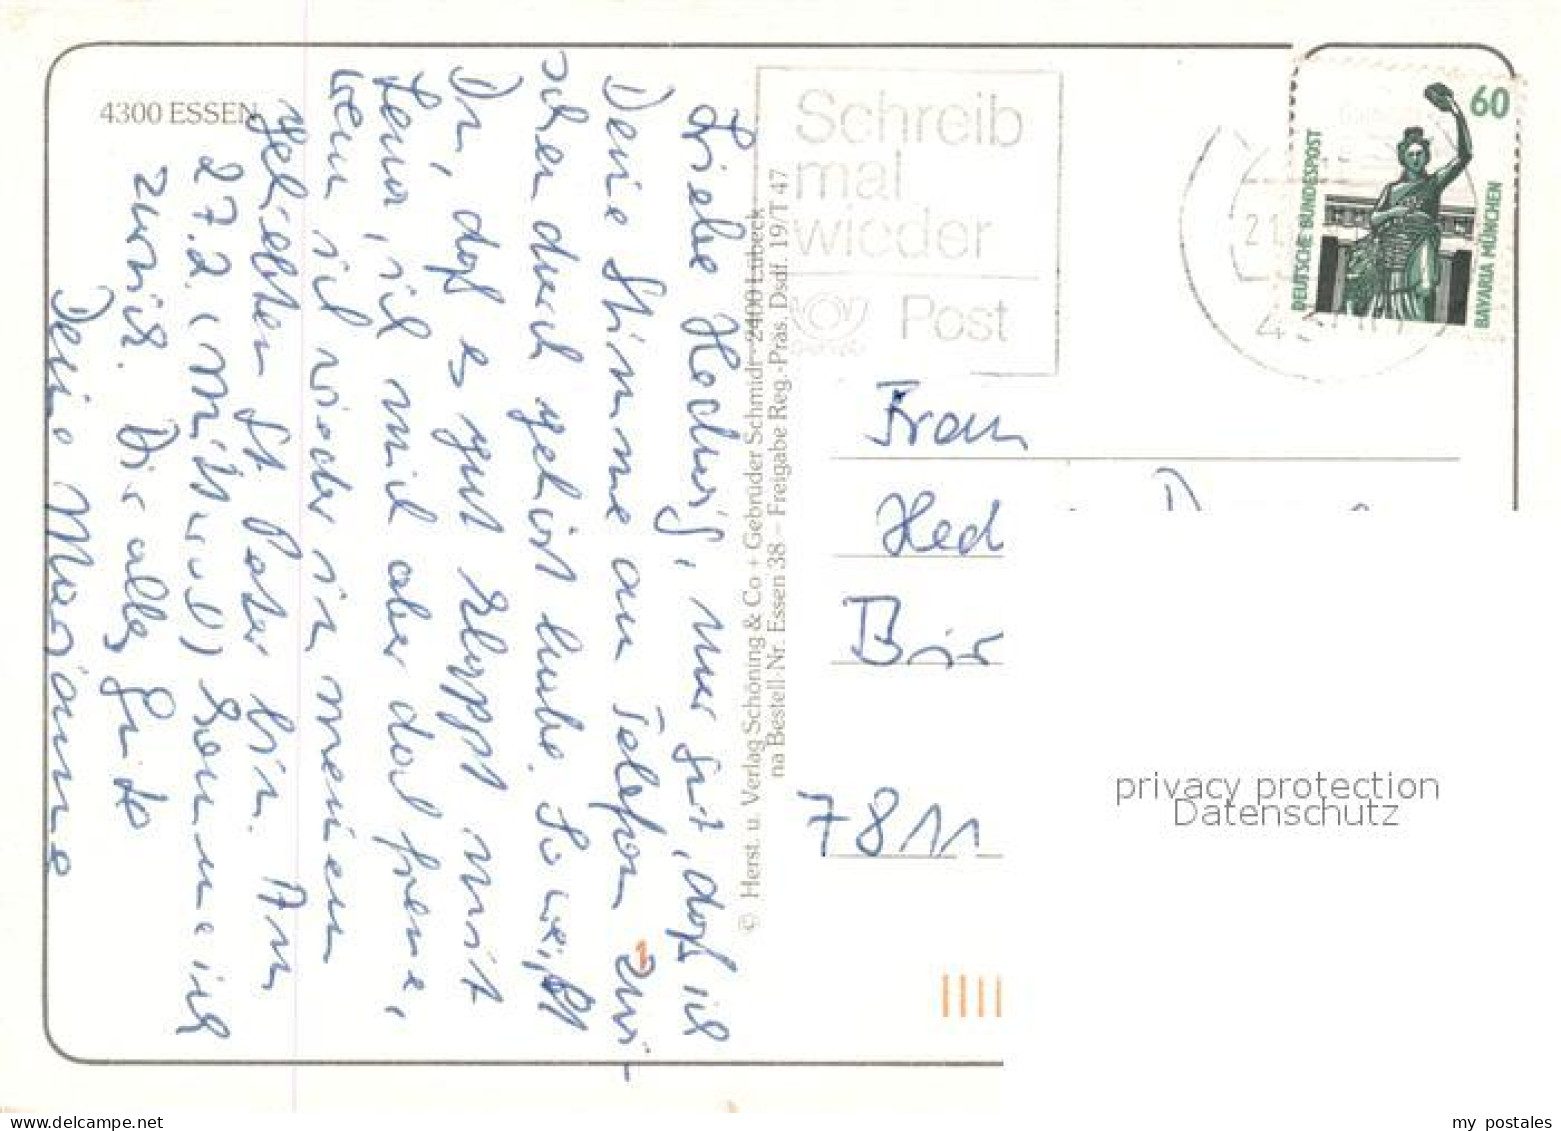 4300 ESSEN
Liebe Hedwig, nur gut, daß ich
Deine Stimme am Telefon zwi-
schen durch gehört habe. So weißt
Du, daß es gut klappt mit
Lena, ich mich aber doch freue,
wenn ich wieder in meinem
geliebten St. Peter bin. Am
27.2. (Mittwoch) komme ich
zurück. Dir alles Gute
Deine Marianne
© Herst. u. Verlag Schöning & Co + Gebrüder Schmidt · 2400 Lübeck
na Bestell-Nr. Essen 38 – Freigabe Reg.-Präs. Dsdf. 19/T 47
Schreib
mal
wieder
Post
60
DEUTSCHE BUNDESPOST
BAVARIA MÜNCHEN
21
Frau
Hed
7811
privacy protection
Datenschutz
www.delcampe.net
my postales